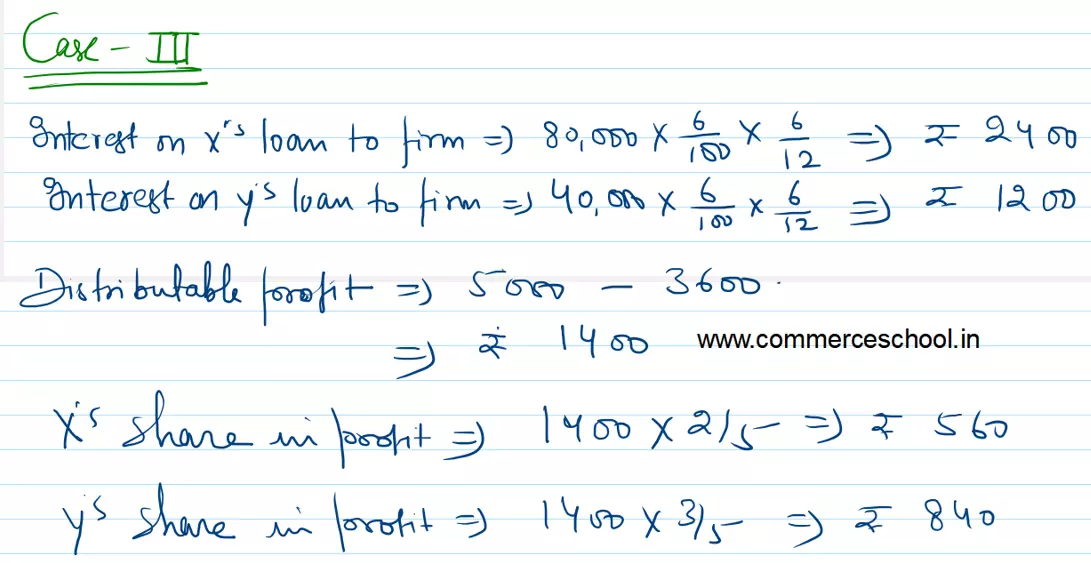 Case - III
Interest on X's loan to firm => 80,000 × 6/100 × 6/12 => ₹ 2400
Interest on Y's loan to firm => 40,000 × 6/100 × 6/12 => ₹ 1200
Distributable profit => 5000 - 3600
=> ₹ 1400 www.commerceschool.in
X's share in profit => 1400 × 2/5 => ₹ 560
Y's share in profit => 1400 × 3/5 => ₹ 840